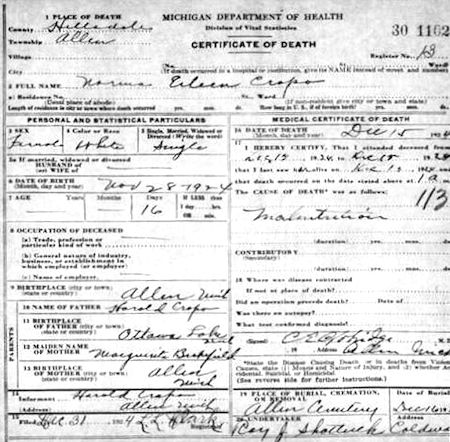 1 PLACE OF DEATH
County Hillsdale
Township Allen
Village
City
MICHIGAN DEPARTMENT OF HEALTH
Division of Vital Statistics
CERTIFICATE OF DEATH
30 1162
Register No. 13
(If death occurred in a hospital or institution, give its NAME instead of street and number)
2 FULL NAME Norma Eileen Crapo
a) Residence No. St. Ward
(Usual place of abode) (If non-resident give city or town and state)
Length of residence in city or town where death occurred yrs. mos. ds. How long in U. S., if of foreign birth? yrs. mos. ds.
PERSONAL AND STATISTICAL PARTICULARS
3 SEX Female
4 Color or Race White
5 Single, Married, Widowed or Divorced (Write the word) Single
5a If married, widowed or divorced
HUSBAND of
(or) WIFE of
6 DATE OF BIRTH
(Month, day and year) Nov 28 1924
7 AGE Years Months Days 16 If LESS than 1 day hrs. OR min.
8 OCCUPATION OF DECEASED
(a) Trade, profession or
particular kind of work
(b) General nature of industry,
business, or establishment in
which employed (or employer)
(c) Name of employer
9 BIRTHPLACE (city or town)
(state or country) Allen Mich
10 NAME OF FATHER Harold Crapo
11 BIRTHPLACE
OF FATHER (city or town)
(state or country) Ottawa Lake Mich
12 MAIDEN NAME
OF MOTHER Marguerite
13 BIRTHPLACE
OF MOTHER (city or town)
(state or country) Allen Mich
14 Harold Crapo
Allen Mich
15 Filed Dec 31 1924
MEDICAL CERTIFICATE OF DEATH
16 DATE OF DEATH
(Month, day and year) Dec 15 1924
17 I HEREBY CERTIFY, That I attended deceased
from 1924, to Dec 15 1924
that I last saw alive on Dec 1924 and that
death occurred on the date stated above at 1 a m.
The CAUSE OF DEATH* was as follows: 113
Malnutrition
(duration) yrs. mos. ds.
CONTRIBUTORY
(Secondary)
(duration) yrs. mos. ds.
18 Where was disease contracted
If not at place of death?
Did an operation precede death? Date of
Was there an autopsy?
What test confirmed diagnosis?
(Signed) M. D.
19
*State the Disease Causing Death, or in deaths from Violent
Causes, state (1) Means and Nature of Injury, and (2) whether Accidental, Suicidal or Homicidal.
(See reverse side for further instructions)
19 PLACE OF BURIAL, CREMATION, OR REMOVAL
Allen Cemetery
Date of Burial
Dec 16 19
20 UNDERTAKER
Ray J Shattuck Coldwater